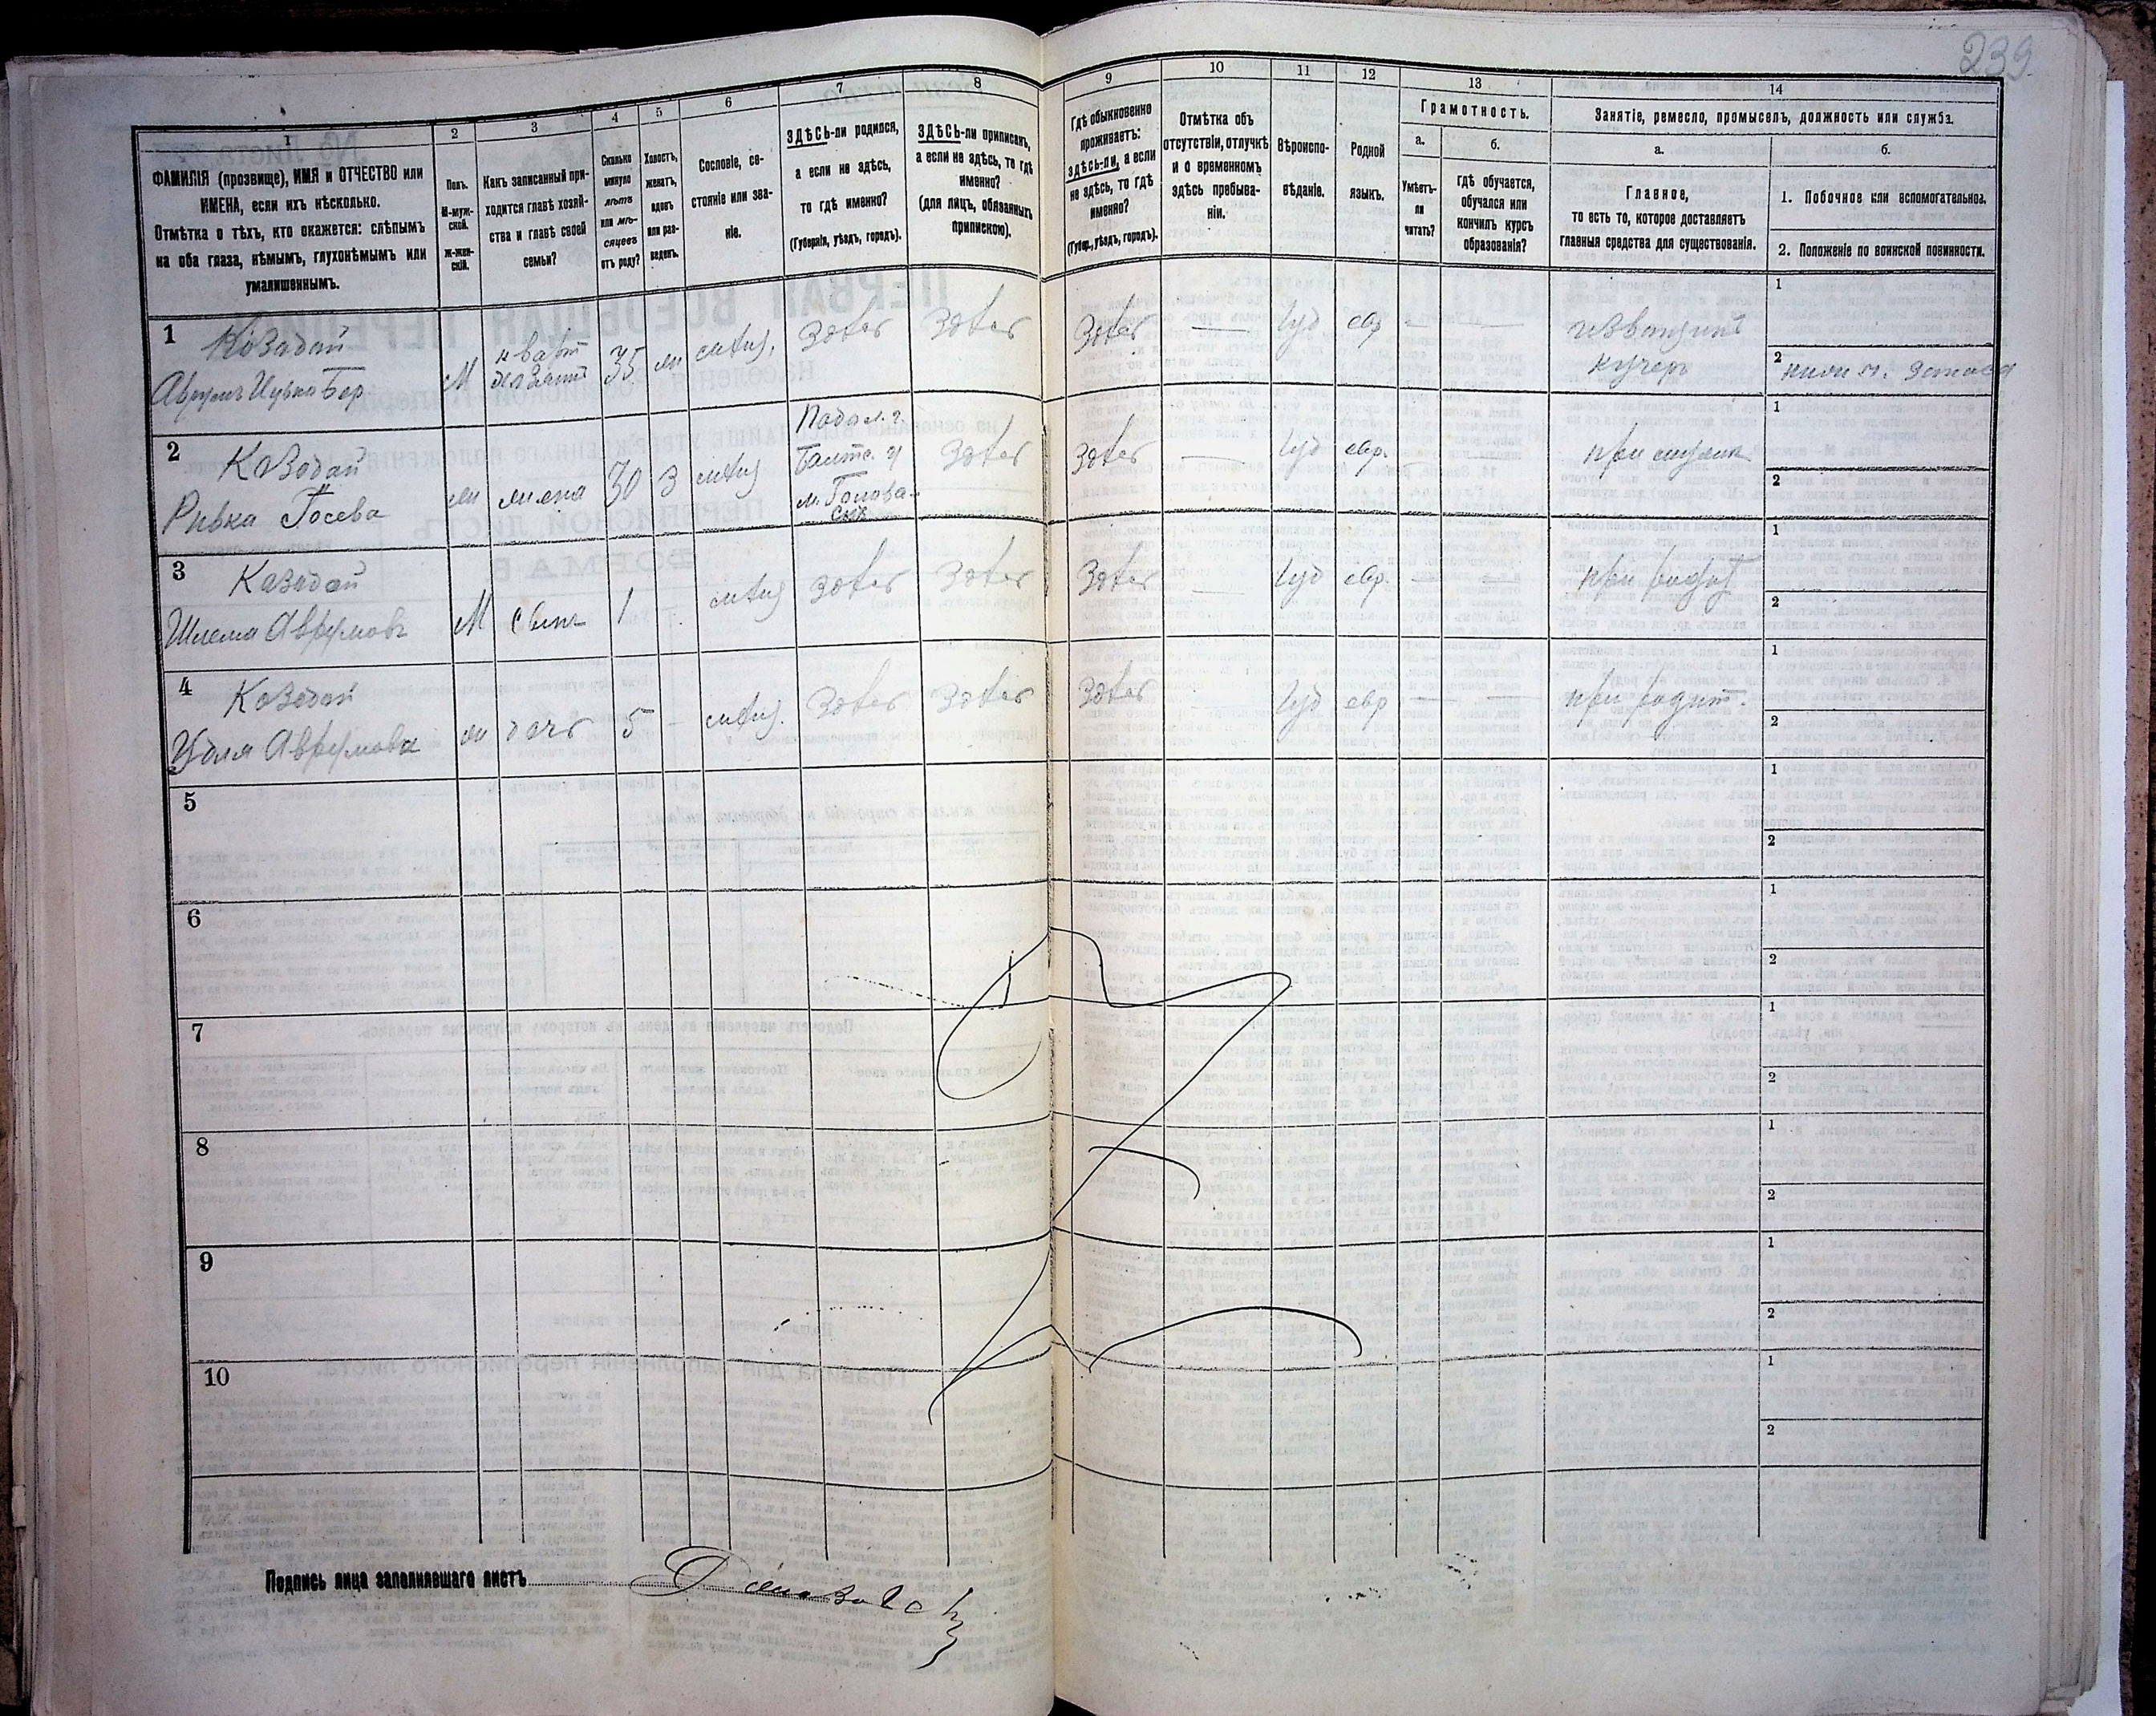 239
1
ФАМИЛІЯ (прозвище), ИМЯ и ОТЧЕСТВО или
ИМЕНА, если ихъ нѣсколько.
Отмѣтка о тѣхъ, кто окажется: слѣпымъ
на оба глаза, нѣмымъ, глухонѣмымъ или
умалишеннымъ.
2
Полъ.
М-муж-
ской.
Ж-жен-
скій.
3
Какъ записанный при-
ходится главѣ хозяй-
ства и главѣ своей
семьи?
4
Сколько
минуло
лѣтъ
или мѣ-
сяцевъ
отъ роду?
5
Холостъ,
женатъ,
вдовъ
или раз-
веденъ.
6
Сословіе, со-
стояніе или зва-
ніе.
7
ЗДѢСЬ-ли родился,
а если не здѣсь,
то гдѣ именно?
(Губернія, уѣздъ, городъ).
8
ЗДѢСЬ-ли приписанъ,
а если не здѣсь, то гдѣ
именно?
(для лицъ, обязанныхъ
припискою).
9
Гдѣ обыкновенно
проживаетъ:
здѣсь-ли, а если
не здѣсь, то гдѣ
именно?
(Губер., уѣздъ, городъ).
10
Отмѣтка объ
отсутствіи, отлучкѣ
и о временномъ
здѣсь пребыва-
ніи.
11
Вѣроиспо-
вѣданіе.
12
Родной
языкъ.
13
Грамотность.
а.
Умѣетъ-
ли
читать?
б.
Гдѣ обучается,
обучался или
кончилъ курсъ
образованія?
14
Занятіе, ремесло, промыселъ, должность или служба.
а.
Главное,
то есть то, которое доставляетъ
главныя средства для существованія.
б.
1. Побочное или вспомогательное.
2. Положеніе по воинской повинности.
1
Козадай
Аврумъ Ицько Бер
М
35
мѣщ.
Здѣсь
Здѣсь
Здѣсь
—
Іуд
евр
—
—
извощикъ
кучеръ
1
2
2
Козодай
Ривка Іосева
ж
жена
30
З
мѣщ
Подол. г.
Балтс. у
м. Голова-
Здѣсь
Здѣсь
—
Іуд
евр.
при мужѣ
1
2
3
Казадай
Шлема Аврумовъ
М
сынъ
1
мѣщ
Здѣсь
Здѣсь
Здѣсь
—
Іуд
евр.
—
—
при родит
1
2
4
Козодай
Аврумова
ж
дочь
5
мѣщ.
Здѣсь
Здѣсь
Здѣсь
—
Іуд
евр
—
—
при родит.
1
2
5
1
2
6
1
2
7
1
2
8
1
2
9
1
2
10
1
2
Подпись лица заполнявшаго листъ